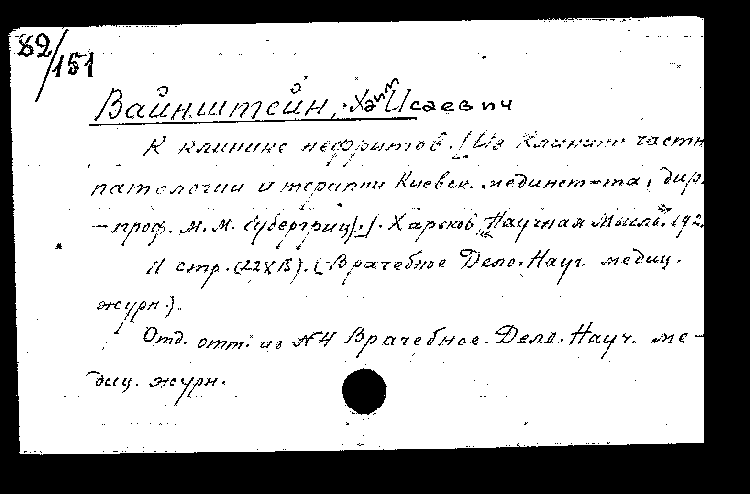 82/151
Вайнштейн, Хаим Исаевич
К клинике нефритов. [Из Клиники частн
патологии и терапии Киевск. мединст-та, дир.
– проф. М. М. Губергриц]. Харьков, "Научная Мысль". 192
11 стр. (22х15). (Врачебное Дело. Науч. медиц.
журн.).
Отд. отт. из №4 Врачебное. Дело. Науч. ме-
диц. журн.